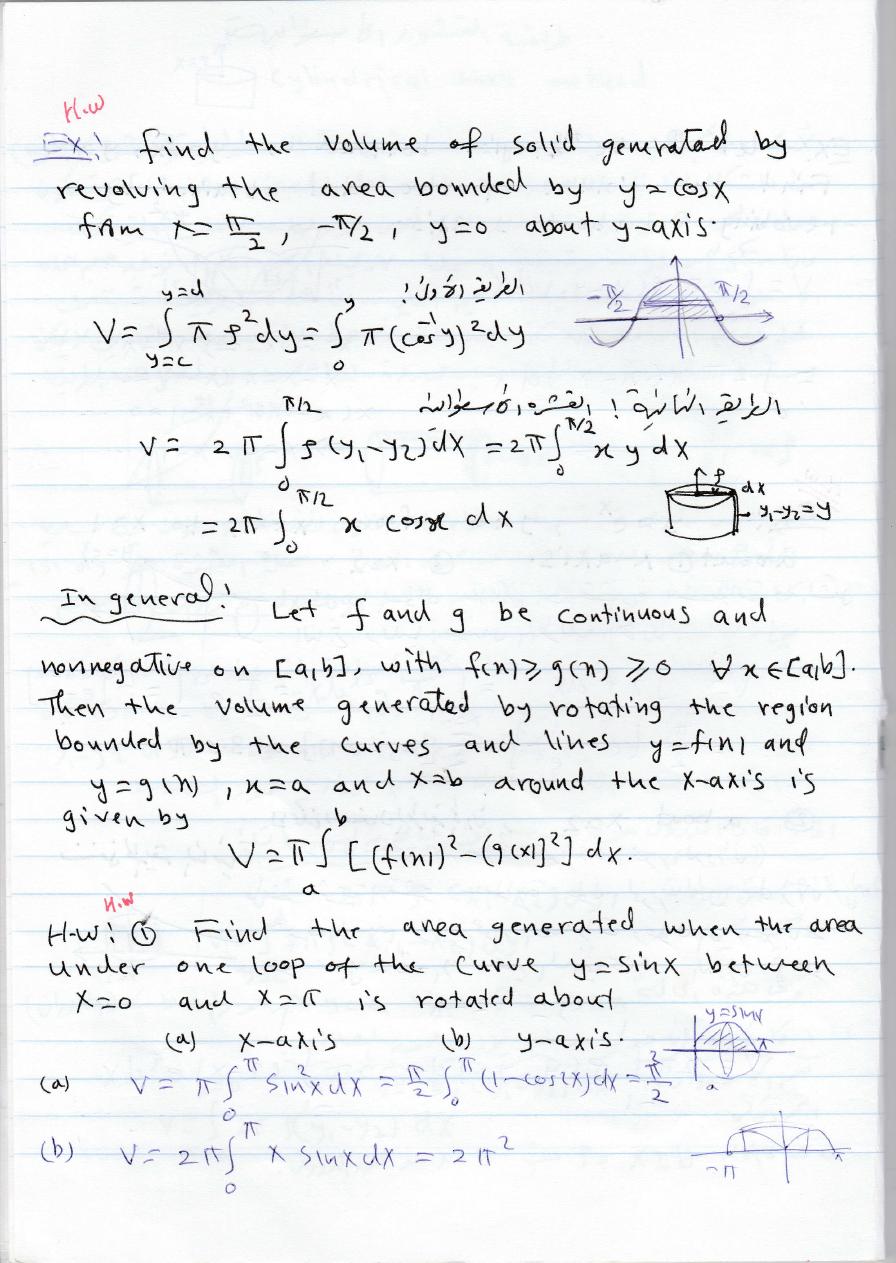 H.W
EX! find the volume of solid generatad by
revolving the area bounded by y = cosx
from x = π/2, -π/2, y=0 about y-axis.
الطريقة الأولى!
-π/2 π/2
V = ∫_{y=c}^{y=d} π ρ² dy = ∫_0^y π (cos⁻¹y)² dy
الطريقة الثانية! القشرة الأسطوانية
V = 2π ∫_0^{π/2} ρ (y₁-y₂) dx = 2π ∫_0^{π/2} x y dx
ρ dx
y₁-y₂=y
= 2π ∫_0^{π/2} x cosx dx
In general! Let f and g be continuous and
nonnegative on [a,b], with f(x) ≥ g(x) ≥ 0 ∀ x ∈ [a,b].
Then the volume generated by rotating the region
bounded by the curves and lines y=f(x) and
y=g(x), x=a and x=b around the x-axis is
given by
V = π ∫_a^b [(f(x))² - (g(x)]²] dx.
H.W
H.W: ① Find the area generated when the area
under one loop of the curve y=sinx between
x=0 and x=π is rotated about
(a) x-axis (b) y-axis.
y=sinx
π
a
(a) V = π ∫_0^π sin²x dx = π/2 ∫_0^π (1-cos2x)dx = π²/2
(b) V = 2π ∫_0^π x sinx dx = 2π²
-π π